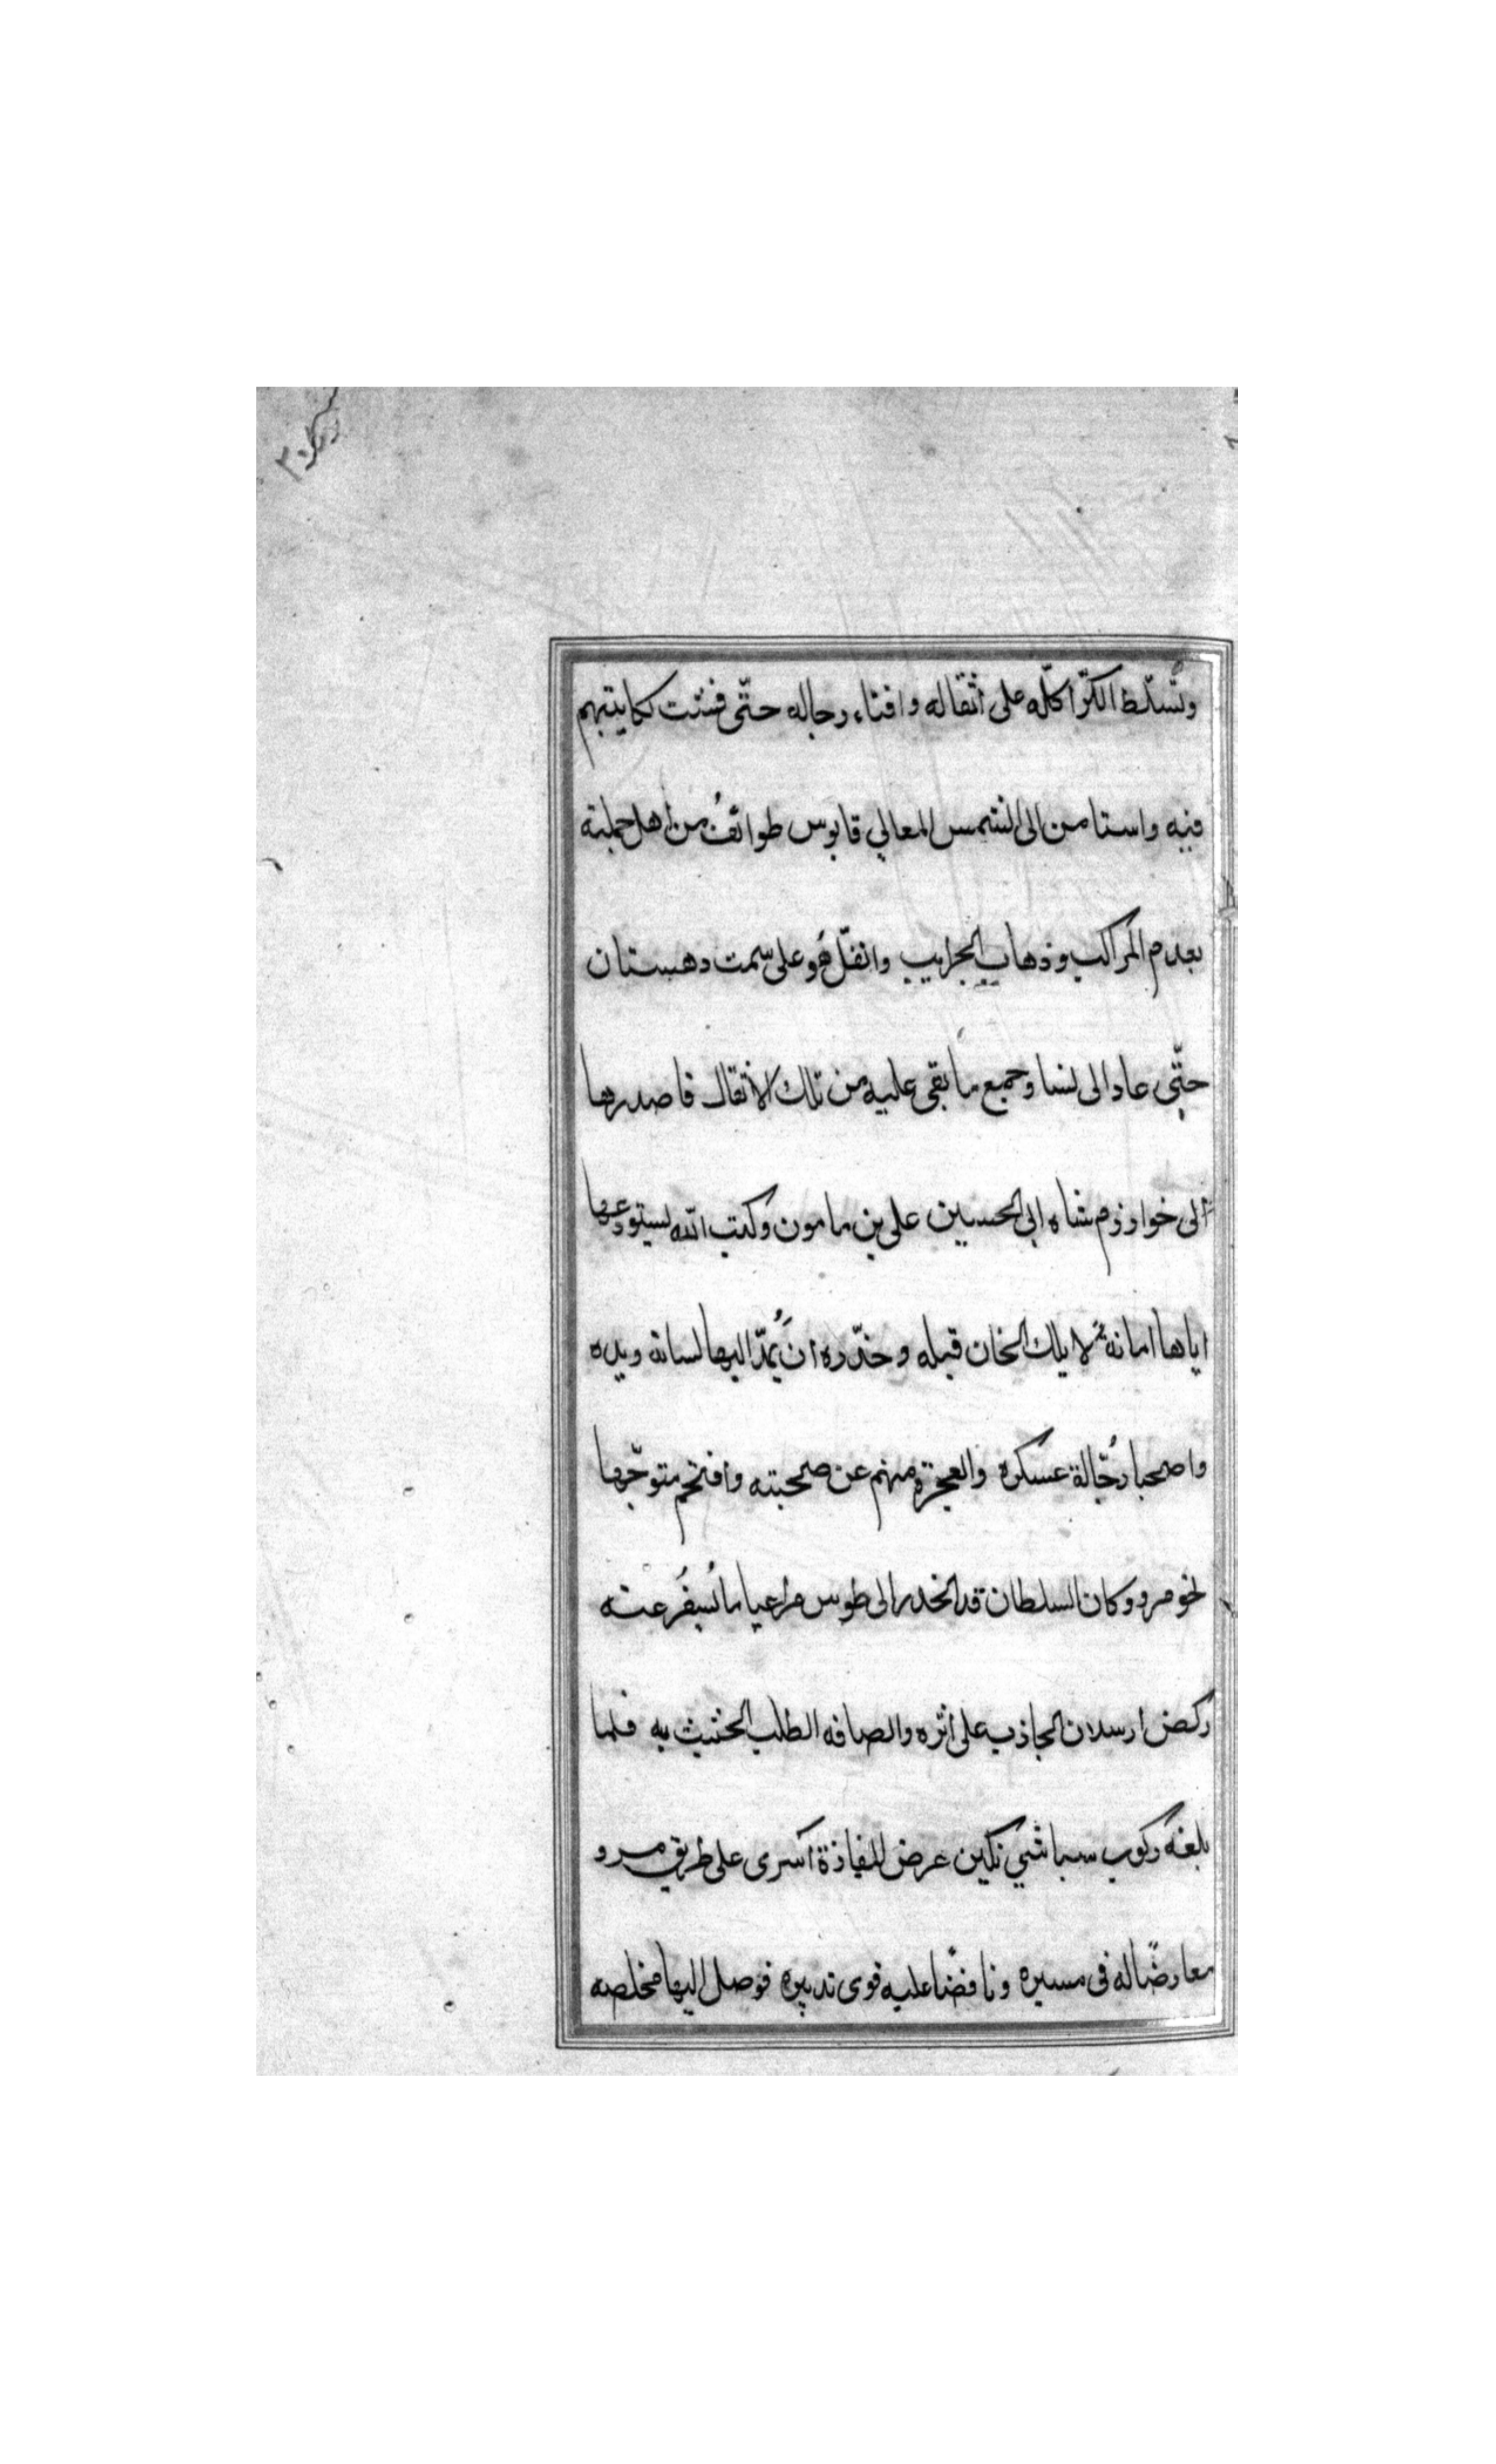 وتسلّط الكرّاكلّه على أثقاله وافناء رجاله حتّى فنئت نكايتهم
فيه واستامن الى الشمس المعالي قابوس طوائفُ من أهل حملته
بعدم المراكب وذهاب الجرايب وانفلّ هُو على سمت دهستان
حتّى عاد الى نسا وجميع ما بقى عليه من تلك الأثقال فاصدرها
ألى خوارزم شاه ابى الحسين على بن مامون وكتب اليه يستودعها
اياها امانة لايلك الخان قبله وحذّره أن يُمدّ اليها لسانه ويده
واصحبها رجّالة عسكره والعجزة منهم عن صحبته وافتحم متوجّها
نحو مرو وكان السلطان قد انحدر الى طوس مراعيا ما يُسفر عنه
ركض ارسلان الجاذب على أثره والصافه الطلب الحثيث به فلما
بلغه ركوب سباشي تكين عرض المفازة أسرى على طريق مرو
معارضًا له فى مسيره ونافضًا عليه قوى تدبيره فوصل اليها مخلصه